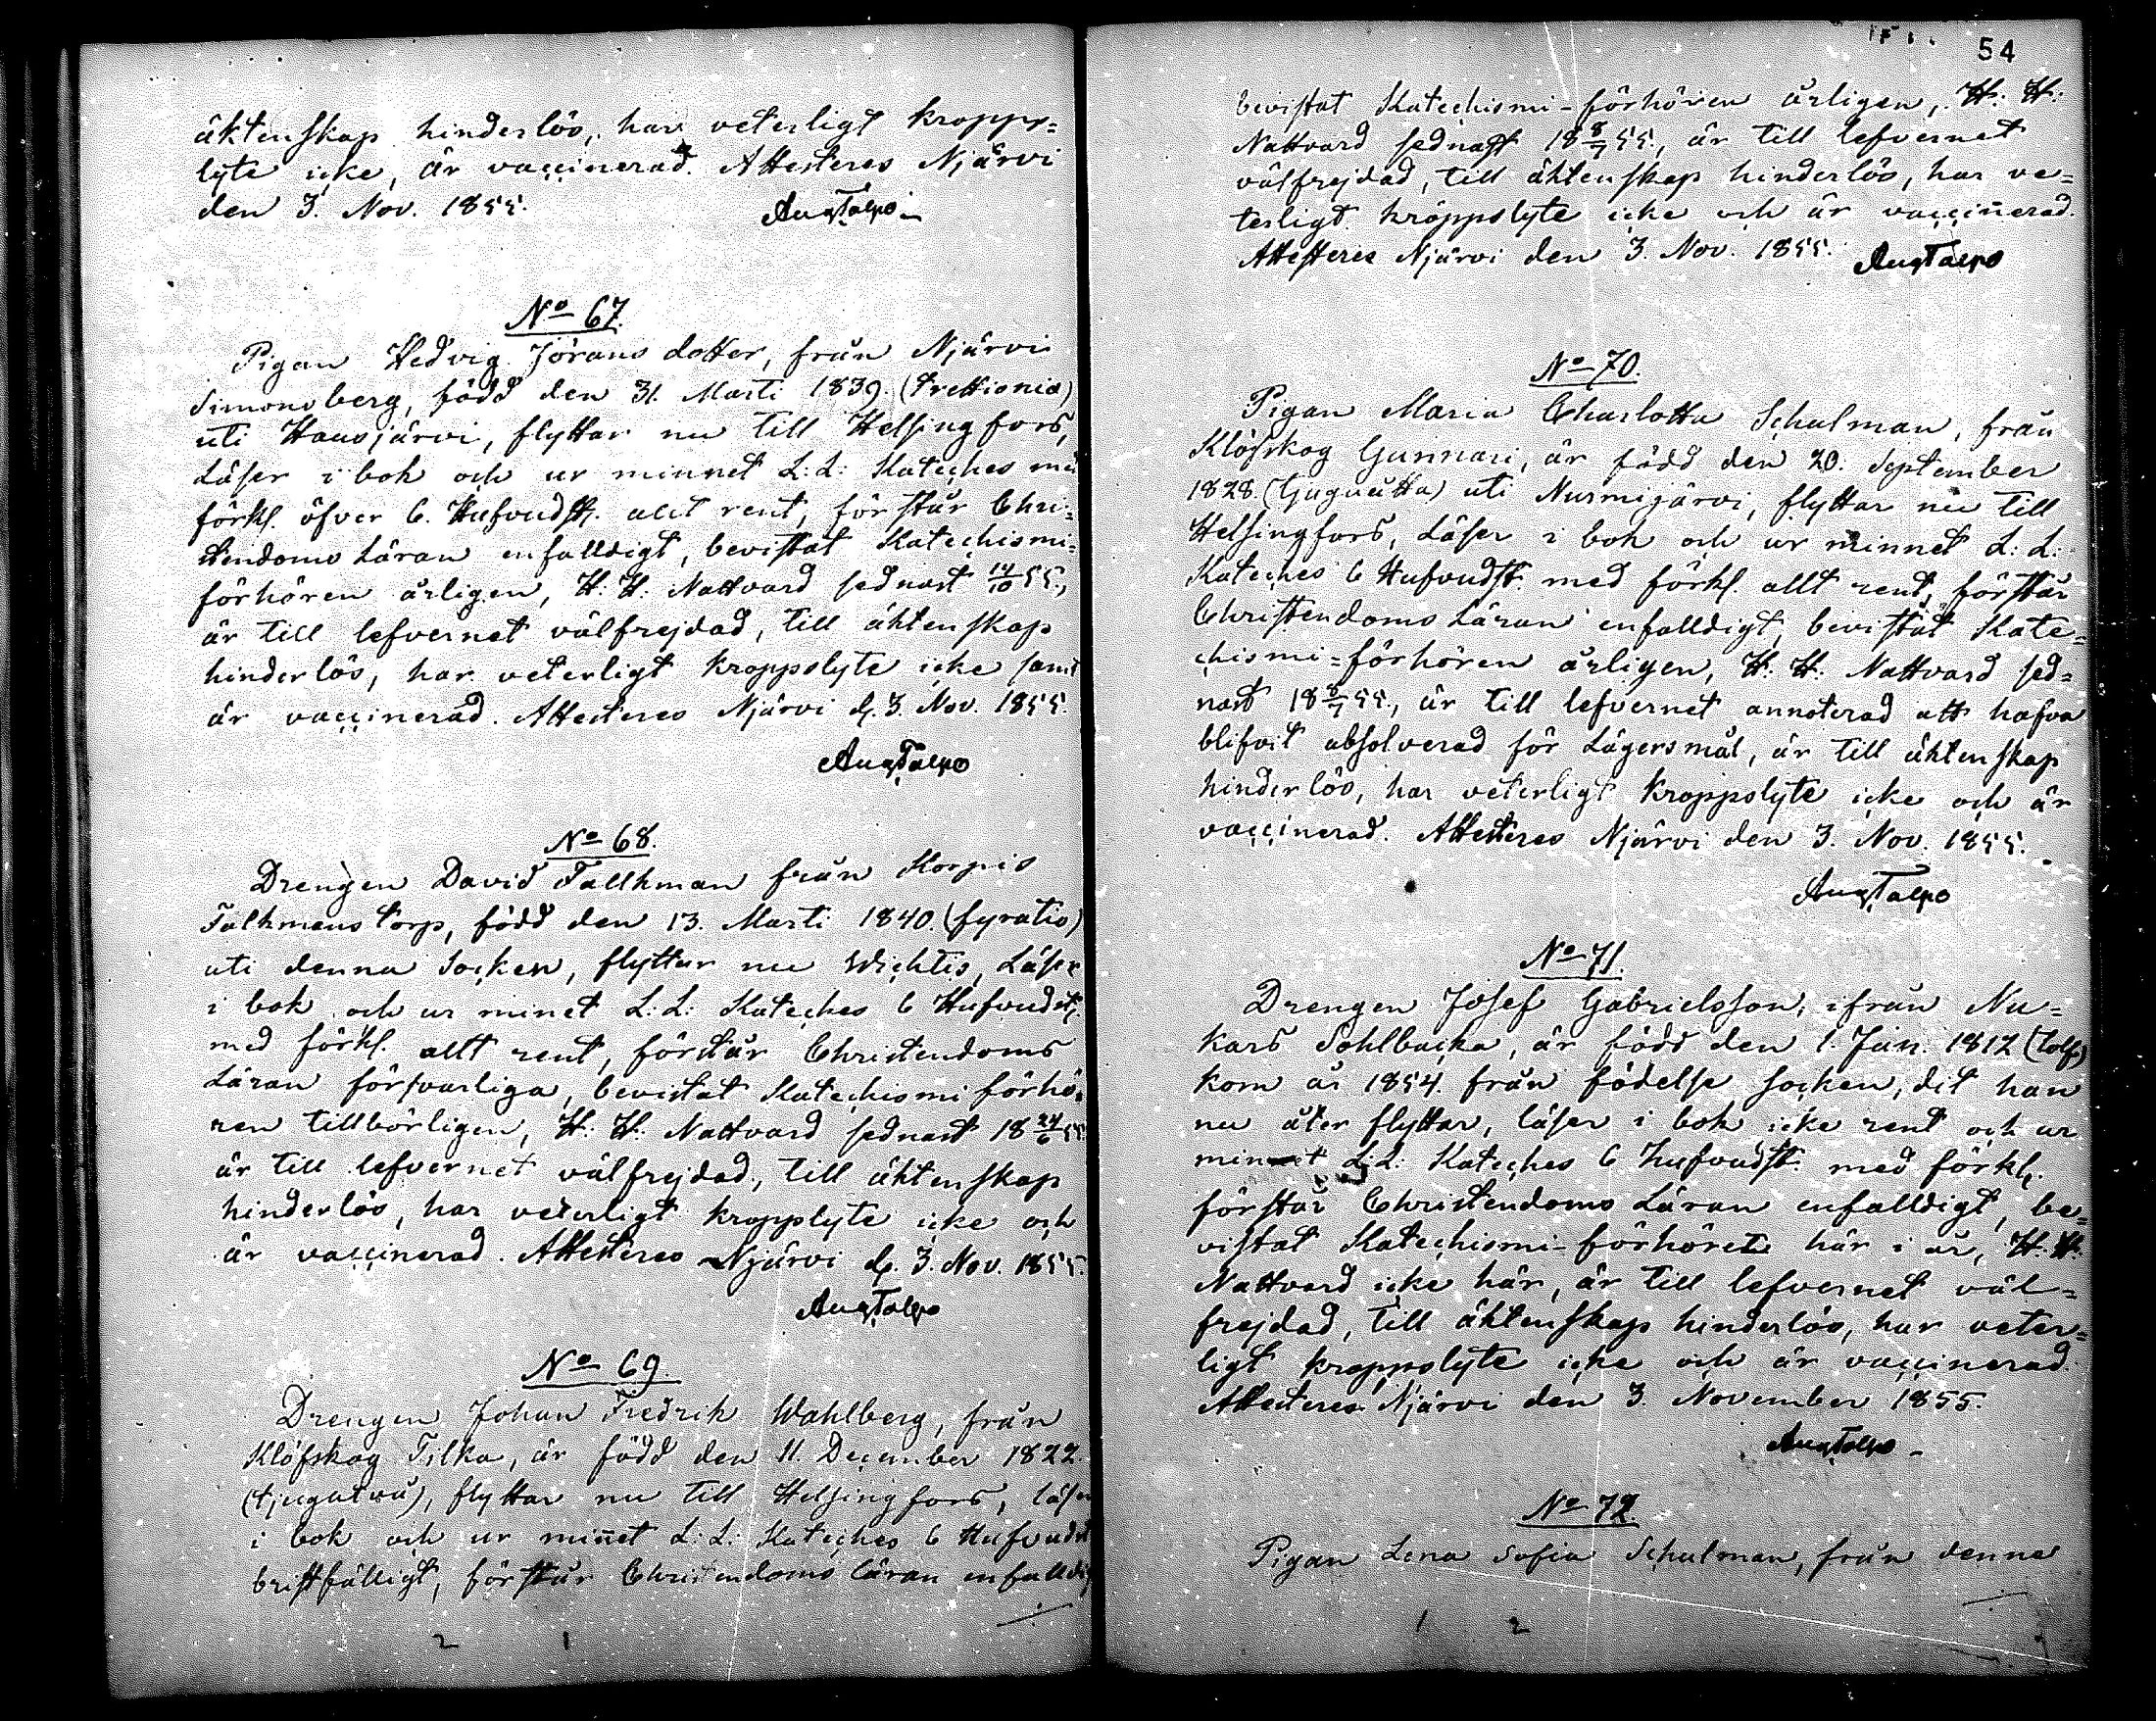 äktenskap hinderlös, har veterligt kropps=
lyte icke, är vaccinerad. Attesteres Njärvi
den 3. Nov. 1855.
AugTalpo
No 67.
Pigan Hedvig Jörans dotter, från Njärvi
Simonsberg, född den 31. Marti 1839. (Trettionio)
uti Hausjärvi, flyttar nu till Helsingfors,
Läser i bok och ur minnet L: L: Kateches med
förkl. öfver 6. Hufvudst. allt rent, förstår Chri=
stendoms Läran enfalldigt, bevistat Katechismi=
förhören årligen, H: H: Nattvard sednast 14/10 55.,
är till lefvernet välfrejdad, till äktenskap
hinderlös, har veterligt kroppslyte icke samt
är vaccinerad. Attesteres Njärvi d. 3. Nov. 1855.
AugTalpo
No 68.
Drengen David Tallkman från Korpis
Talkmans torp, född den 13. Marti 1840. (fyratio)
uti denna Socken, flyttar nu Wichtis, Läser
i bok och ur minet L: L: Kateches 6 Hufvudst.
med förkl. allt rent, förstår Christendoms
Läran försvarliga, bevistat Katechismi förhö=
ren tillbörligen, H: H: Nattvard sednast 18 24/6 55.
är till lefvernet välfrejdad, till äktenskap
hinderlös, har veterligt kropplyte icke och
är vaccinerad. Attesteres Njärvi d. 3. Nov. 1855.
AugTalpo
No 69.
Drengen Johan Fredrik Wahlberg, från
Klöfskog Tilka, är född den 11. December 1822.
(tjugutvå), flyttar nu till Helsingfors, läser
i bok och ur minnet L: L: Kateches 6 Hufvudst
bristfälligt, förstår Christendoms läran enfalldig
54
bevistat Katechismi-förhören årligen, H: H:
Nattvard sednast 18 8/7 55., är till lefvernet
välfrejdad, till äktenskap hinderlös, har ve=
terligt kroppslyte icke och är vaccinerad.
Attesteres Njärvi den 3. Nov. 1855.
AugTalpo
No 70.
Pigan Maria Charlotta Schulman, från
Klöfskog Gunnari, är född den 20. September
1828. (tjuguåtta) uti Nurmijärvi, flyttar nu till
Helsingfors, Läser i bok och ur minnet L: L:
Kateches 6 Hufvudst. med förkl. allt rent, förstår
Christendoms Läran enfalldigt, bevistat Kate=
chismi=förhören årligen, H: H: Nattvard sed=
nast 18 8/7 55., är till lefvernet annoterad att hafva
blifvit absolverad för Lägersmål, är till äktenskap
hinderlös, har veterligt kroppslyte icke och är
vaccinerad. Attesteres Njärvi den 3. Nov. 1855.
AugTalpo
No 71.
Drengen Josef Gabrielsson, ifrån Nu=
kars Sohlbacka, är född den 1. Jan. 1812 (tolf)
kom år 1854. från födelse socken, dit han
nu åter flyttar, läser i bok icke rent och ur
minnet L: L: Kateches 6 hufvudst. med förkl.
förstår Christendoms Läran enfalldigt, be=
vistat Katechismi-förhöret här i år, H: H:
Nattvard icke här, är till lefvernet väl=
frejdad, till äktenskap hinderlös, har veter=
ligt kroppslyte icke och är vaccinerad.
Attesteres Njärvi den 3. November 1855.
AugTalpo
No 72.
Pigan Lena Sofia Schulman, från denna
2 1
1 2